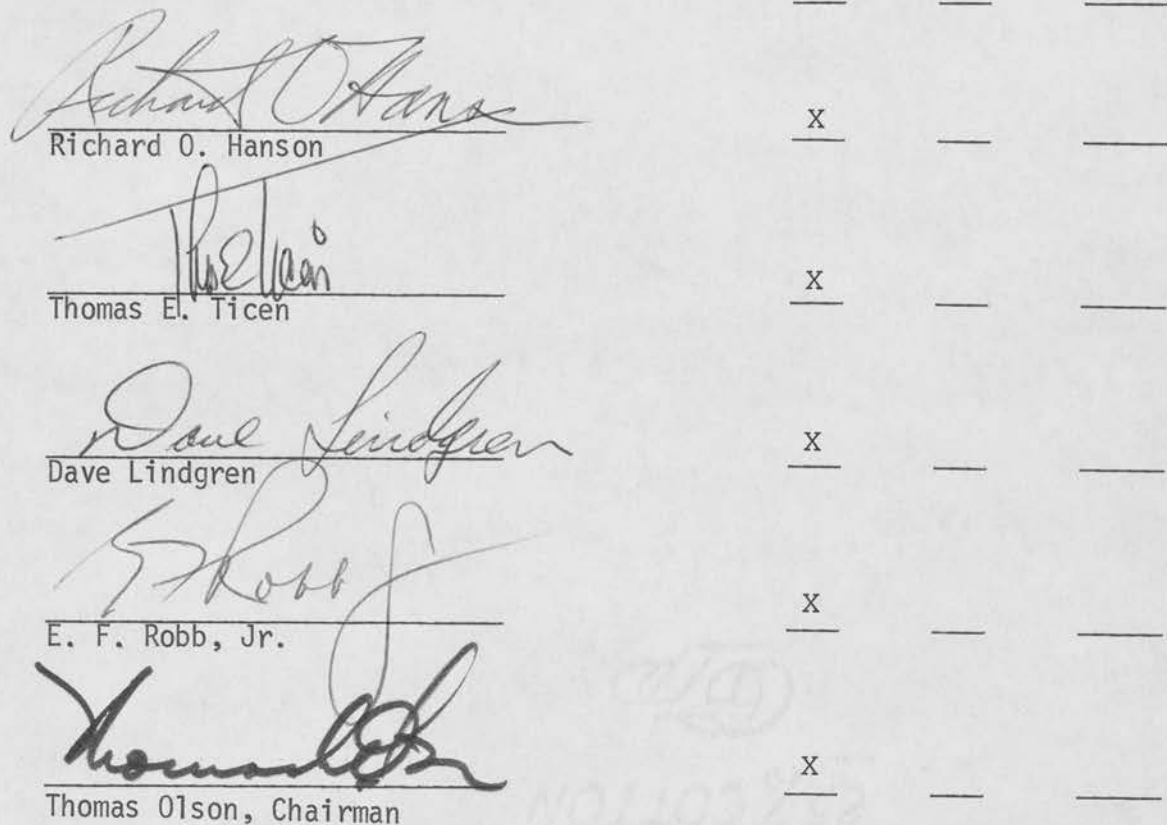 Richard O Hans
Richard O. Hanson X
Thomas E. Ticen X
Dave Lindgren
Dave Lindgren X
E F Robb Jr
E. F. Robb, Jr. X
Thomas Olson, Chairman X